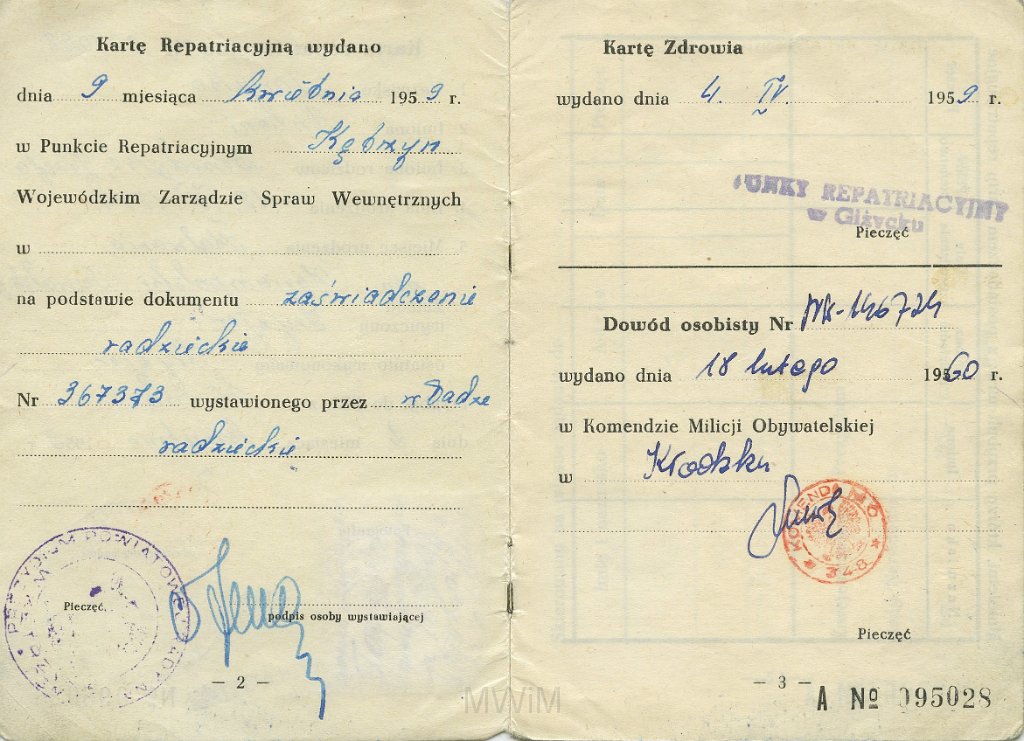 Kartę Repatriacyjną wydano
dnia 9 miesiąca kwietnia 1959 r.
w Punkcie Repatriacyjnym Kętrzyn
Wojewódzkim Zarządzie Spraw Wewnętrznych
w
na podstawie dokumentu zaświadczenie
radzieckie
Nr 367373 wystawionego przez władze
radzieckie
PREZYDIUM POWIATOWEJ
Pieczęć
podpis osoby wystawiającej
– 2 –
Kartę Zdrowia
wydano dnia 4. IV. 1959 r.
PUNKT REPATRIACYJNY
w Giżycku
Pieczęć
Dowód osobisty Nr 146724
wydano dnia 18 lutego 1960 r.
w Komendzie Milicji Obywatelskiej
w Kłodzku
KOMENDA MO
348
Pieczęć
– 3 –
A Nº 095028
MWiM